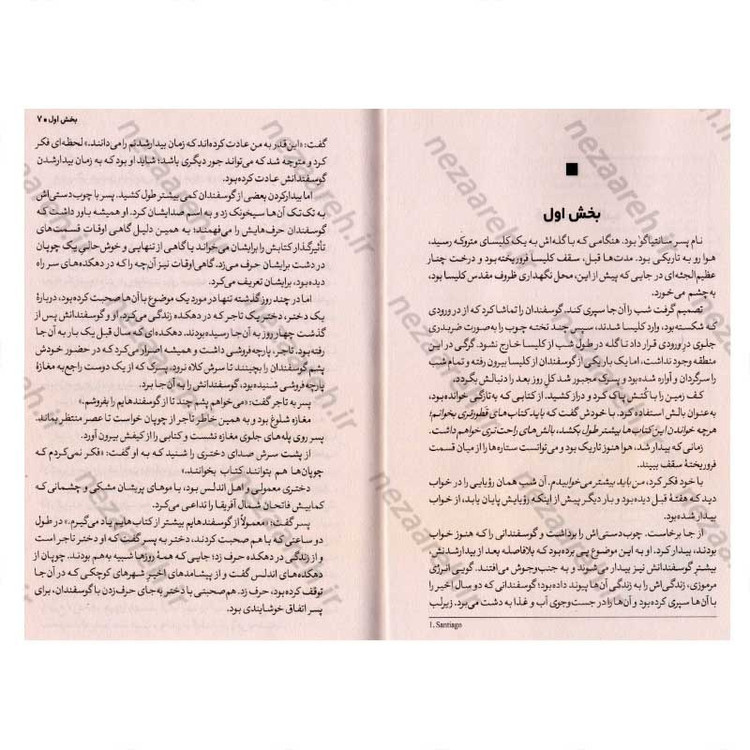 بخش اول
نام پسر سانتیاگو¹ بود. هنگامی که با گله‌اش به یک کلیسای متروکه رسید،
هوا رو به تاریکی بود. مدت‌ها قبل، سقف کلیسا فروریخته بود و درخت چنار
عظیم‌الجثه‌ای در جایی که پیش از این، محل نگهداری ظروف مقدس کلیسا بود،
به‌چشم می‌خورد.
تصمیم گرفت شب را آن‌جا سپری کند. گوسفندان را تماشا کرد که از در ورودی
که شکسته بود، وارد کلیسا شدند، سپس چند تخته چوب را به‌صورت ضربدری
جلوی در ورودی قرار داد تا گله در طول شب از کلیسا خارج نشود. گرگی در این
منطقه وجود نداشت، اما یک بار یکی از گوسفندان از کلیسا بیرون رفته و تمام شب
را سرگردان و آواره شده بود و پسرک مجبور شد کل روز بعد را دنبالش بگردد.
کف زمین را با کُتش پاک کرد و دراز کشید. از کتابی که به‌تازگی خوانده بود،
به‌عنوان بالش استفاده کرد. با خودش گفت که باید کتاب های قطورتری بخوانم؛
هرچه خواندن این کتاب‌ها بیشتر طول بکشد، بالش‌های راحت‌تری خواهم داشت.
زمانی که بیدار شد، هوا هنوز تاریک بود و می‌توانست ستاره‌ها را از میان قسمت
فروریختهٔ سقف ببیند.
با خود فکر کرد، من باید بیشتر می‌خوابیدم. آن شب همان رؤیایی را در خواب
دید که هفتهٔ قبل دیده بود و بار دیگر پیش از اینکه رؤیایش پایان یابد، از خواب
بیدار شده بود.
از جا برخاست. چوب‌دستی‌اش را برداشت و گوسفندانی را که هنوز خواب
بودند، بیدار کرد. او به این موضوع پی برده بود که بلافاصله بعد از بیدارشدنش،
بیشتر گوسفندانش نیز بیدار می‌شوند و به جنب‌وجوش می‌افتند. گویی انرژی
مرموزی، زندگی‌اش را به زندگی آن‌ها پیوند داده بود؛ گوسفندانی که دو سال اخیر را
با آن‌ها سپری کرده بود و آن‌ها را در جست‌وجوی آب و غذا به دشت می‌برد. زیرلب
1. Santiago
بخش اول ● ۷
گفت: «این‌قدر به من عادت کرده‌اند که زمان بیدارشدنم را می‌دانند.» لحظه‌ای فکر
کرد و متوجه شد که می‌تواند جور دیگری باشد؛ شاید او بود که به زمان بیدارشدن
گوسفندانش عادت کرده بود.
اما بیدارکردن بعضی از گوسفندان کمی بیشتر طول کشید. پسر با چوب‌دستی‌اش
به تک‌تک آن‌ها سیخونک زد و به اسم صدایشان کرد. او همیشه باور داشت که
گوسفندان حرف‌هایش را می‌فهمند؛ به همین دلیل گاهی اوقات قسمت‌های
تأثیرگذار کتابش را برایشان می‌خواند یا گاهی از تنهایی و خوش‌حالی یک چوپان
در دشت برایشان حرف می‌زد. گاهی اوقات نیز آن‌چه را که در دهکده‌های سر راه
دیده بود، برایشان تعریف می‌کرد.
اما در چند روز گذشته تنها در مورد یک موضوع با آن‌ها صحبت کرده بود، دربارهٔ
یک دختر، دختر یک تاجر که در دهکده زندگی می‌کرد. او و گوسفندانش پس از
گذشت چهار روز به آن‌جا رسیده بودند. دهکده‌ای که سال قبل یک بار به آن‌جا
رفته بود. تاجر، پارچه‌فروشی داشت و همیشه اصرار می‌کرد که در حضور خودش
پشم گوسفندان را بچینند تا سرش کلاه نرود. پسرک که از یک دوست راجع‌به مغازهٔ
پارچه‌فروشی شنیده بود، گوسفندانش را به آن‌جا برد.
پسر به تاجر گفت: «می‌خواهم پشم چند تا از گوسفندهایم را بفروشم.»
مغازه شلوغ بود و به همین خاطر تاجر از چوپان خواست تا عصر منتظر بماند.
پسر روی پله‌های جلوی مغازه نشست و کتابی را از کیفش بیرون آورد.
از پشت سرش صدای دختری را شنید که به او گفت: «فکر نمی‌کردم که
چوپان‌ها هم بتوانند کتاب بخوانند.»
دختری معمولی و اهل اندلس بود، با موهای پریشان مشکی و چشمانی که
کمابیش فاتحان شمال آفریقا را تداعی می‌کرد.
پسر گفت: «معمولاً از گوسفندهایم بیشتر از کتاب‌هایم یاد می‌گیرم.» در طول
دو ساعتی که با هم صحبت کردند، دختر به پسر گفت که او دختر تاجر است
و از زندگی در دهکده حرف زد؛ جایی که همهٔ روزها شبیه به‌هم بودند. چوپان از
دهکده‌های اندلس گفت و از پیشامدهای اخیر شهرهای کوچکی که در آن‌جا
توقف کرده بود، حرف زد. هم‌صحبتی با دختر به‌جای حرف‌زدن با گوسفندان، برای
پسر اتفاق خوشایندی بود.
nezaareh.ir